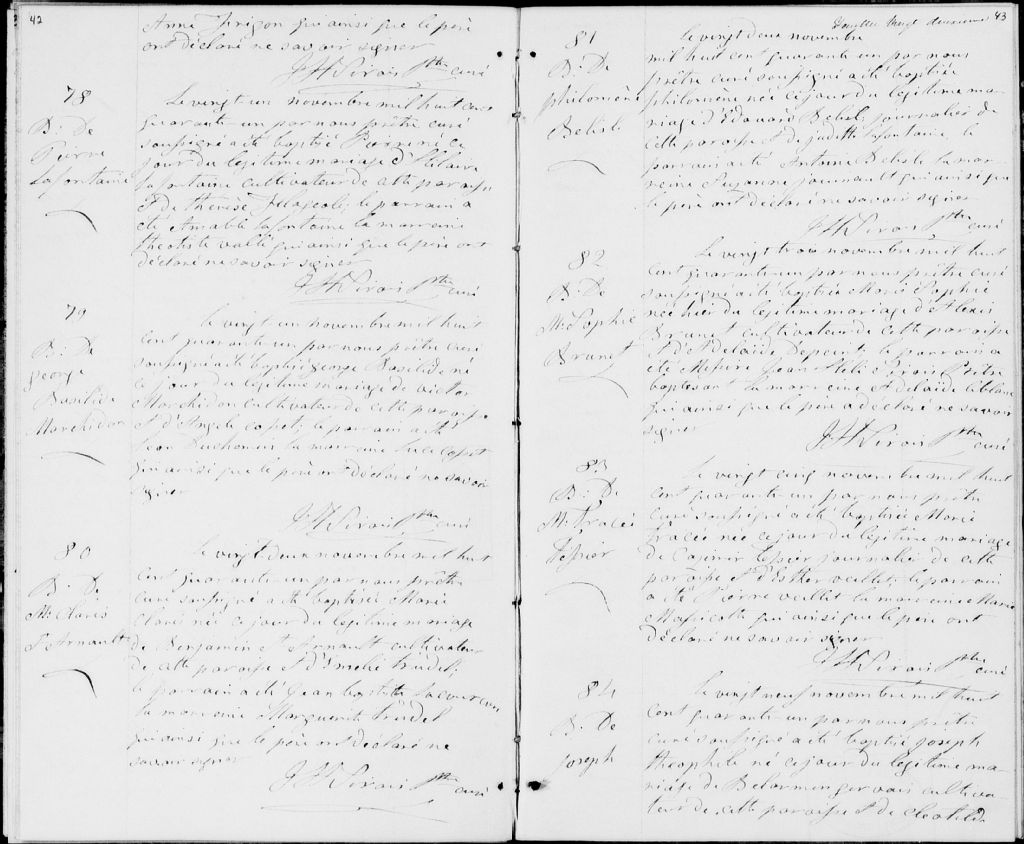 42
Anne Frigon qui ainsi que le père
ont déclaré ne savoir signer
Ptre curé
78
B: De
Pierre
Lafontaine
Le vingt un novembre mil huit cent
quarante-un par nous prêtre curé
soussigné a été baptisé Pierre né ce
jour du légitime mariage d'Hilaire
Lafontaine cultivateur de cette paroisse
& de Thérèse le parrain a
été Amable Lafontaine la marraine
Theotiste vallé qui ainsi que le père ont
déclaré ne savoir signer
Ptre curé
79
B: De
george
Basilide
Marchidon
Le vingt-un novembre mil huit
cent quarante-un par nous prêtre curé
soussigné a été baptisé george Basilide né
ce jour du légitime mariage de victor
Marchidon cultivateur de cette paroisse
& d'Angele cosset; le parrain a été
Léon la marraine Luce Cosset
qui ainsi que le père ont déclaré ne savoir
signer
Ptre curé
80
B: De
Me Clarie
St Arnault
Le vingt deux novembre mil huit
cent quarante-un par nous prêtre
curé soussigné a été baptisée Marie
née ce jour du légitime mariage
de Benjamin St Arnault cultivateur
de cette paroisse & d' Trudel;
le parrain a été Jean baptiste Lacoursière
la marraine Marguerite trudel
qui ainsi que le père ont déclaré ne
savoir signer
Ptre curé
43
81
B: De
philomène
Belisle
Le vingt deux novembre
mil huit cent quarante un par nous
prêtre curé soussigné a été baptisée
philomène née ce jour du légitime ma-
riage d'Edouard Belisle journalier de
cette paroisse & de judith lafontaine, le
parrain a été Antoine Belisle la mar-
reine Suzanne journault qui ainsi que
le père ont déclaré ne savoir signer
Ptre curé
82
B: De
Me Sophie
Brunet
Le vingt trois novembre mil huit
cent quarante-un par nous prêtre curé
soussigné a été baptisée Marie Sophie
née hier du légitime mariage d'Alexis
Brunet cultivateur de cette paroisse
& d'Adelaïde le parrain a
été Messire Jean prêtre
la marraine Adelaide leblanc
qui ainsi que le père a déclaré ne savoir
signer
Ptre curé
83
B: De
Me
Tessier
Le vingt cinq novembre mil huit
cent quarante-un par nous prêtre
curé soussigné a été baptisée Marie
née ce jour du légitime mariage
de Casimir Tessier journalier de cette
paroisse & d'Esther veillet; le parrain
a été Pierre veillet la marraine Marie
Massicotte qui ainsi que le père ont
déclaré ne savoir signer
Ptre curé
84
B: De
joseph
Le vingt neuf novembre mil huit
cent quarante-un par nous prêtre
curé soussigné a été baptisé joseph
théophile né ce jour du légitime ma-
riage de gervais cultiva-
teur de cette paroisse & de Cleotilde